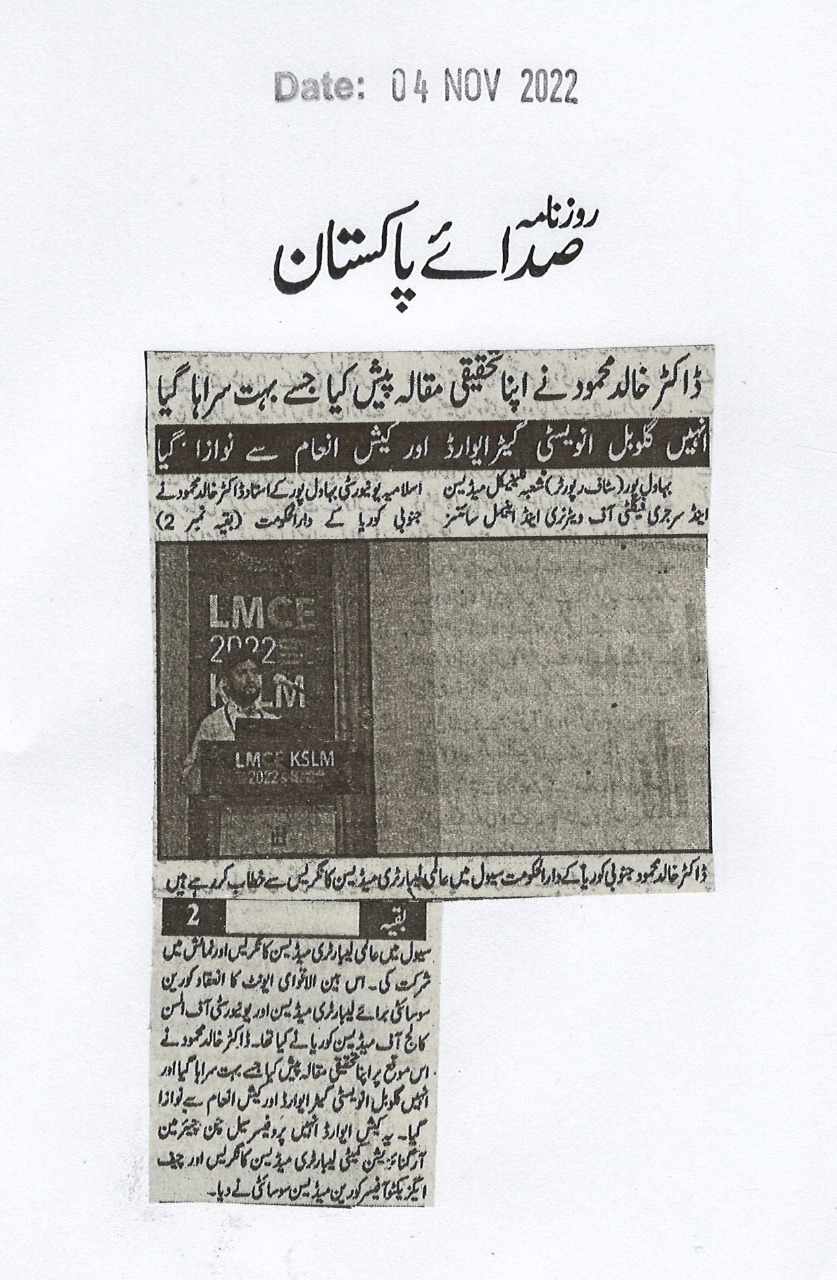 Date: 04 NOV 2022
روزنامہ
صدائے پاکستان
ڈاکٹر خالد محمود نے اپنا تحقیقی مقالہ پیش کیا جسے بہت سراہا گیا
انہیں گلوبل انویسٹی گیٹر ایوارڈ اور کیش انعام سے نوازا گیا
بہاول پور (سٹاف رپورٹر) شعبہ کلینیکل میڈیسن
اینڈ سرجری فیکلٹی آف ویٹرنری اینڈ اینیمل سائنسز
اسلامیہ یونیورسٹی بہاول پور کے استاد ڈاکٹر خالد محمود نے
جنوبی کوریا کے دارالحکومت (بقیہ نمبر 2)
LMCE
2022
KSLM
LMCE KSLM
2022
ڈاکٹر خالد محمود جنوبی کوریا کے دارالحکومت سیول میں عالمی لیبارٹری میڈیسن کانگریس سے خطاب کر رہے ہیں
بقیہ 2
سیول میں عالمی لیبارٹری میڈیسن کانگریس اور نمائش میں
شرکت کی۔ اس بین الاقوامی ایونٹ کا انعقاد کورین
سوسائٹی برائے لیبارٹری میڈیسن اور یونیورسٹی آف السن
کالج آف میڈیسن کوریا نے کیا تھا۔ ڈاکٹر خالد محمود نے
اس موقع پر اپنا تحقیقی مقالہ پیش کیا جسے بہت سراہا گیا اور
انہیں گلوبل انویسٹی گیٹر ایوارڈ اور کیش انعام سے نوازا
گیا۔ یہ کیش ایوارڈ انہیں پروفیسر سیل چن چیئرمین
آرگنائزیشن کمیٹی لیبارٹری میڈیسن کانگریس اور چیف
ایگزیکٹو آفیسر کورین میڈیسن سوسائٹی نے دیا۔